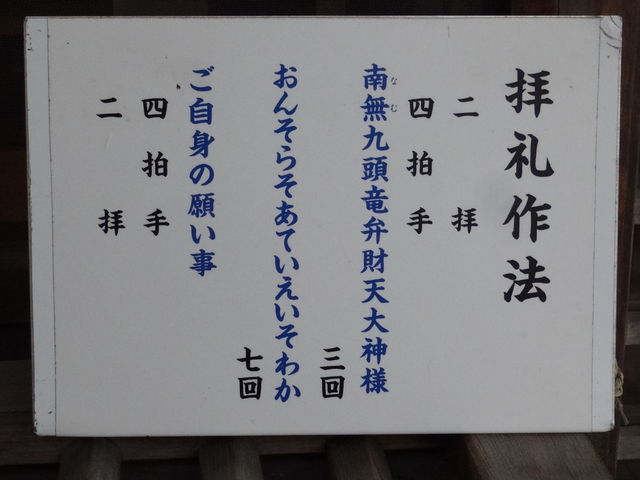 拝礼作法
二拝
四拍手
南無九頭竜弁財天大神様
なむ
三回
おんそらそあていえいそわか
七回
ご自身の願い事
四拍手
二拝